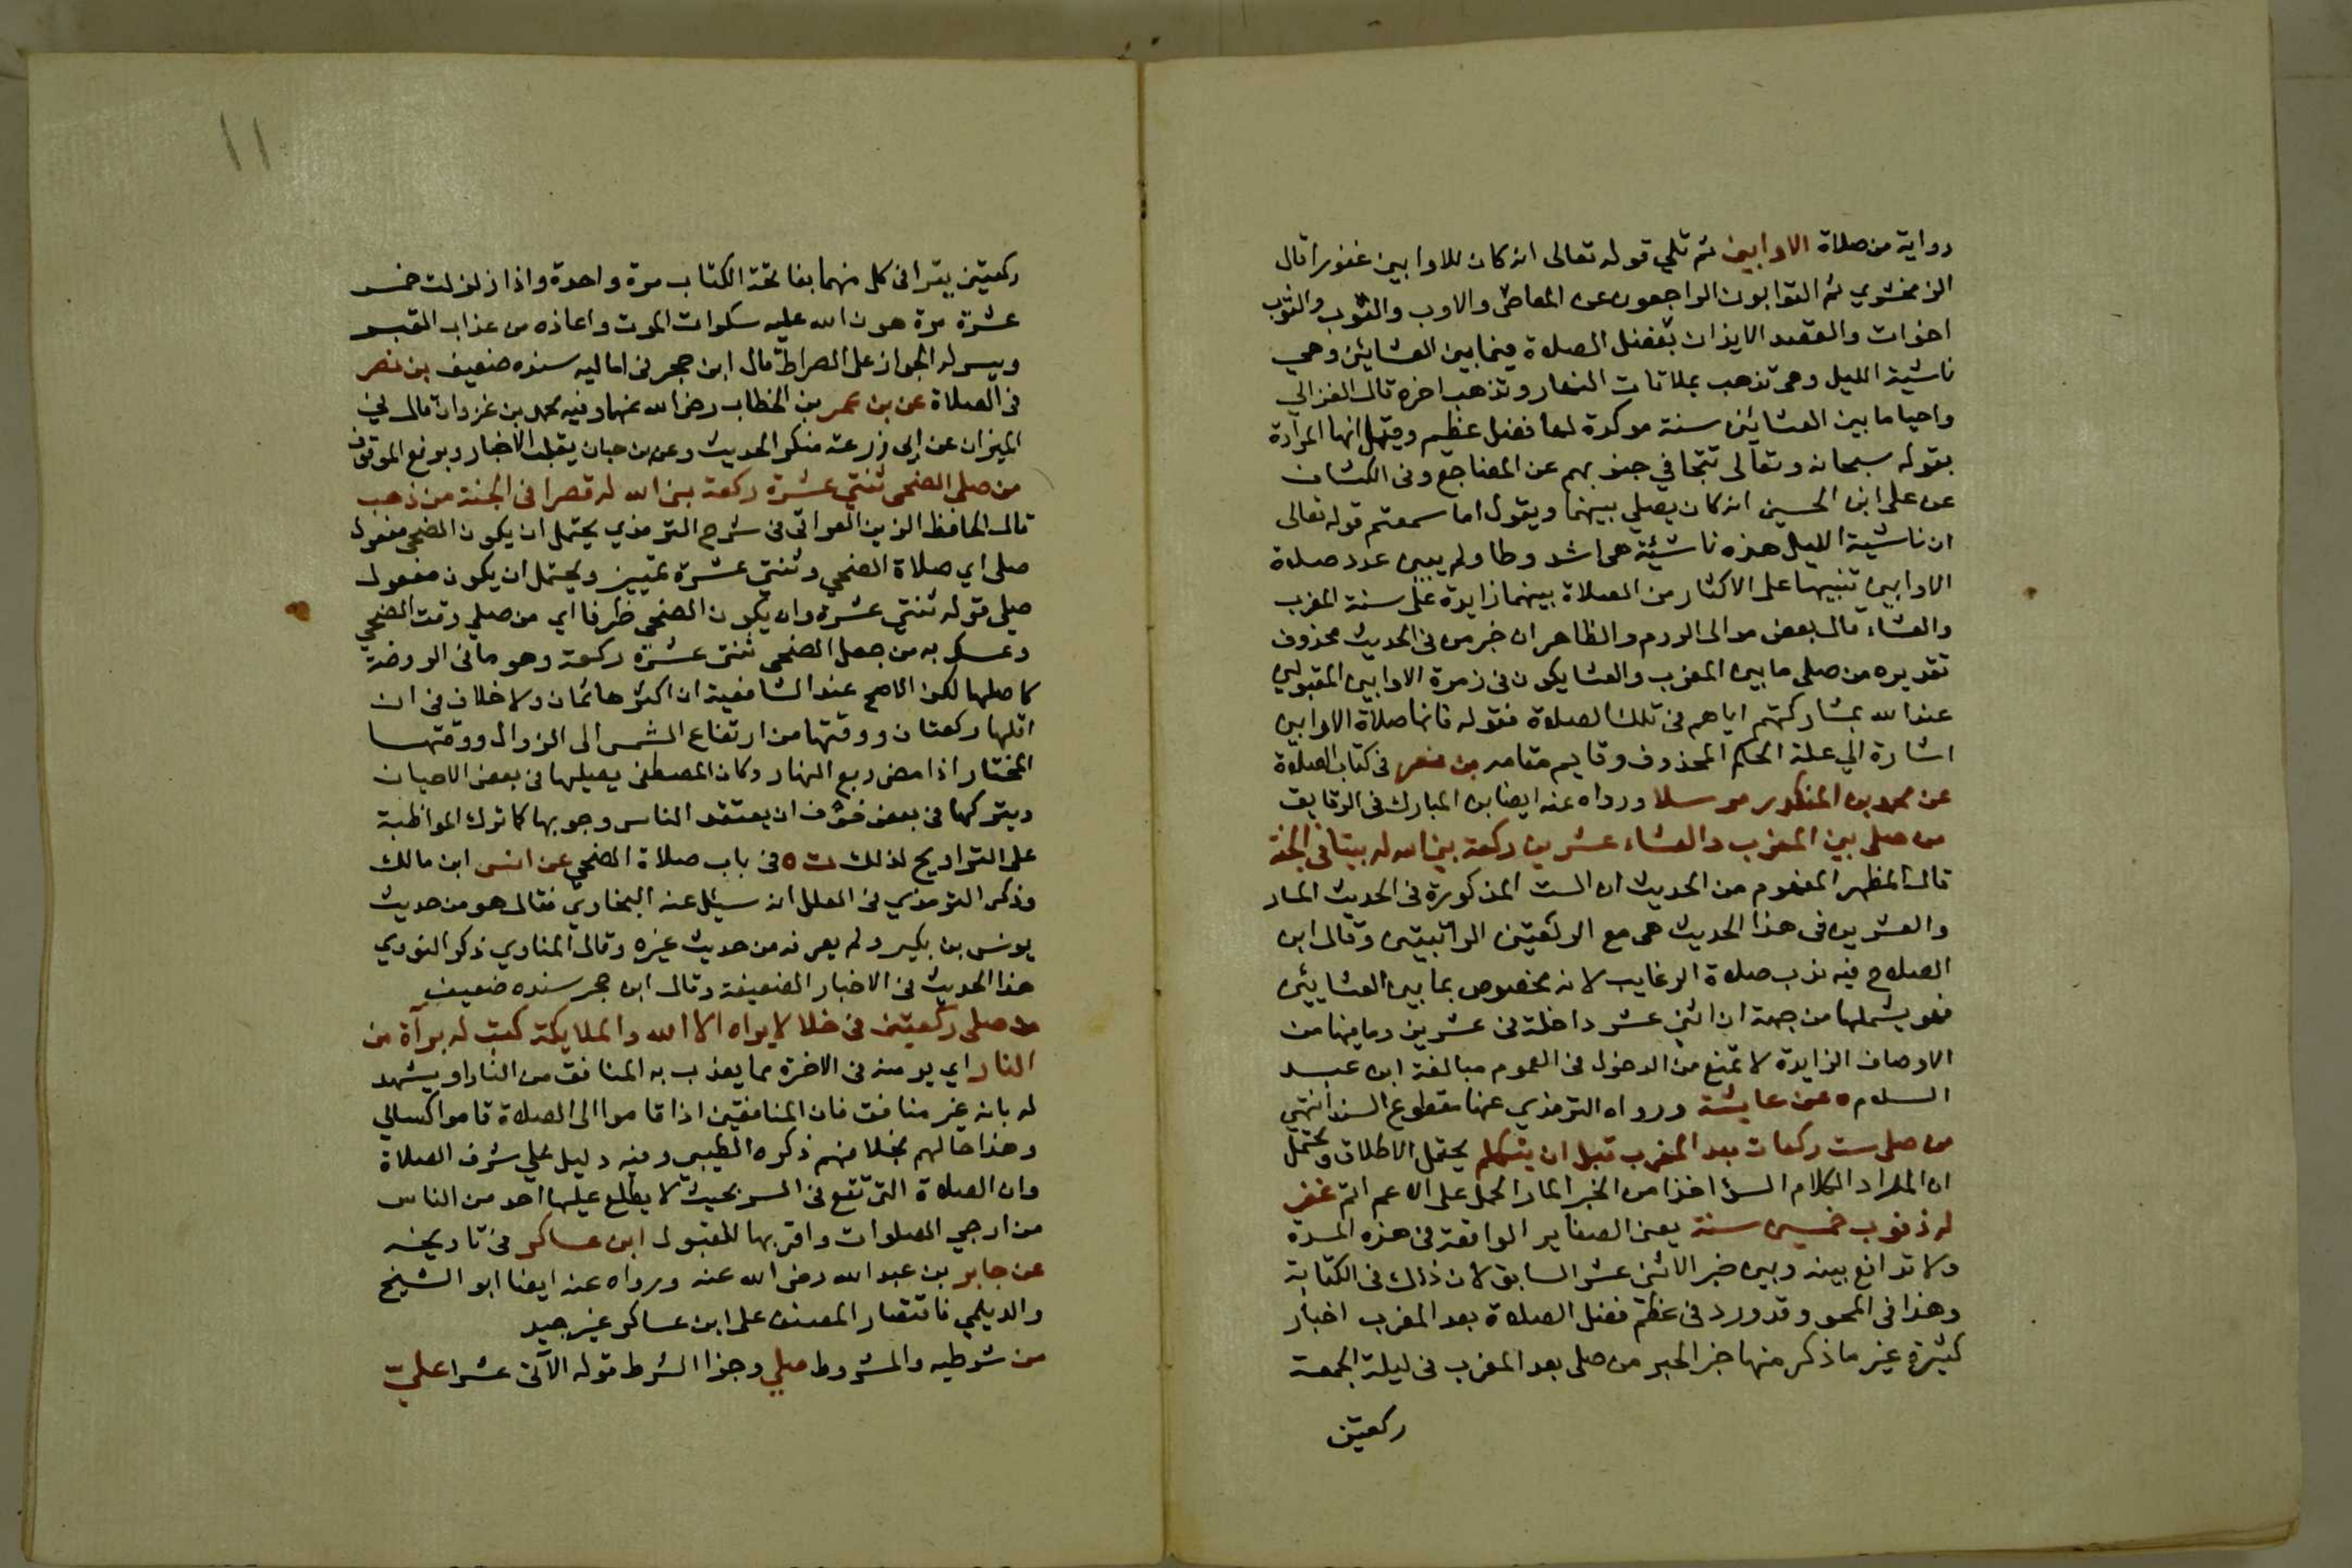 رواية من صلاة الاوابين ثم تلي قوله تعالى انه كان للاوابين غفورا قال
الزمخشري ثم التوابون الراجعون عن المعاصى والاوب والثوب والتوب
اخوات والقصد الايذان بفضل الصلاة فيما بين العشائين وهي
ناشية الليل وهى تذهب بملاقات النهار وتذهب اخره قال الغزالي
واحيا ما بين العشائين سنة موكدة لها فضل عظيم وقيل انها المرادة
بقوله سبحانه وتعالى تتجافي جنوبهم عن المضاجع وفى الكشاف
عن على ابن الحسين انه كان يصلي بينهما ويقول اما سمعتم قوله تعالى
ان ناشية الليل هذه ناشئة هى اشد وطا ولم يبين عدد صلاة
الاوابين تنبيها على الاكثار من الصلاة بينهما زايدة على سنة المغرب
والعشاء قال بعض موالى الروم والظاهر ان خبر من فى الحديث محذوف
تقديره من صلى ما بين المغرب والعشا يكون فى زمرة الاوابين المقبولين
عند الله بمشاركتهم اياهم فى تلك الصلاة فقوله فانها صلاة الاوابين
اشارة الي علة الحكم المحذوف وقايم مقامه بن نصر فى كتاب الصلاة
عن محمد بن المنكدر مرسلا ورواه عنه ايضا بن المبارك فى الرقايق
من صلى بين المغرب والعشاء عشرين ركعة بنى الله له بيتا فى الجنة
قال المظهر المفهوم من الحديث ان الست المذكورة فى الحديث المار
والعشرين فى هذا الحديث هى مع الركعتين الراتبتين وقال ابن
الصلاح فيه ندب صلاة الرغايب لانه مخصوص بما بين العشايئن
فهو يشملها من جهة ان اثنى عشر داخلة فى عشرين وما فيها من
الاوصاف الزايدة لا تمنع من الدخول فى العموم مبالغة ابن عبد
السلام ه عن عايشة ورواه الترمذي عنها مقطوع السند انتهي
من صلى ست ركعات بعد المغرب قبل ان يتكلم يحتمل الاطلاق ويحتمل
ان المراد الكلام السؤ اخذا من الخبر المار الحمل على الاعم اتم غفر
له ذنوب خمسين سنة يعنى الصغاير الواقعة فى هذه المدة
ولا تدافع بينه وبين خبر الاثنى عشر السابق لان ذلك فى الكتابة
وهذا فى المحو وقد ورد فى عظم فضل الصلاة بعد المغرب اخبار
كثيرة غير ما ذكر منها خبر الحبر من صلى بعد المغرب فى ليلة الجمعة
ركعتين
١١
ركعتين يقرا فى كل منهما بفاتحة الكتاب مرة واحدة واذا زلزلت خمس
عشرة مرة هون الله عليه سكرات الموت واعاذه من عذاب القبر
ويسر له الجواز على الصراط قال ابن حجر فى اماليه سنده ضعيف بن نصر
فى الصلاة عن بن عمر بن الخطاب رضى الله عنهما وفيه محمد بن غزوان قال فى
الميزان عن ابى زرعة منكر الحديث وعن بن حبان يقلب الاخبار ويرفع الموقوف
من صلى الضحى ثنتي عشرة ركعة بنى الله له قصرا فى الجنة من ذهب
قال الحافظ الزين العراقى فى شرح الترمذي يحتمل ان يكون الضحى مفعول
صلى اي صلاة الضحي وثنتى عشرة تمييز ويحتمل ان يكون مفعول
صلى قوله ثنتي عشرة وان يكون الضحى ظرفا اي من صلي وقت الضحي
وتمسك به من جعل الضحى ثنتى عشرة ركعة وهو ما فى الروضة
كاصلها لكن الاصح عند الشافعية ان اكثرها ثمان ولا خلاف فى ان
اقلها ركعتان ووقتها من ارتفاع الشمس الى الزوال ووقتها
المختار اذا مضى ربع النهار وكان المصطفى يصليها فى بعض الاحيان
ويتركها فى بعض خوف ان يعتقد الناس وجوبها كما ترك المواظبة
على التراويح لذلك ت ه فى باب صلاة الضحي عن انس ابن مالك
وذكر الترمذي فى العلل انه سئل عنه البخاري فقال هو من حديث
يونس بن بكير ولم يعرفه من حديث غيره وقال المناوي ذكر النووي
هذا الحديث فى الاخبار الضعيفة وقال ابن حجر سنده ضعيف
من صلى ركعتين فى خلا لا يراه الا الله والملايكة كتبت له برآة من
النار اي يومنه فى الاخرة مما يعذب به المنافق من النار او يشهد
له بانه غير منافق فان المنافقين اذا قاموا الى الصلاة قاموا كسالي
وهذا حالهم بخلا فهم ذكره الطيبى وفيه دليل علي شرف الصلاة
وان الصلاة التى تقع فى السر بحيث لا يطلع عليها احد من الناس
من ارجي الصلوات واقربها للقبول ابن عساكر فى تاريخه
عن جابر بن عبد الله رضى الله عنه ورواه عنه ايضا ابو الشيخ
والديلمي فاقتصار المصنف على ابن عساكر غير جيد
من شرطيه والمشروط صلي وجزا الشرط قوله الآتى عشرا عليّ